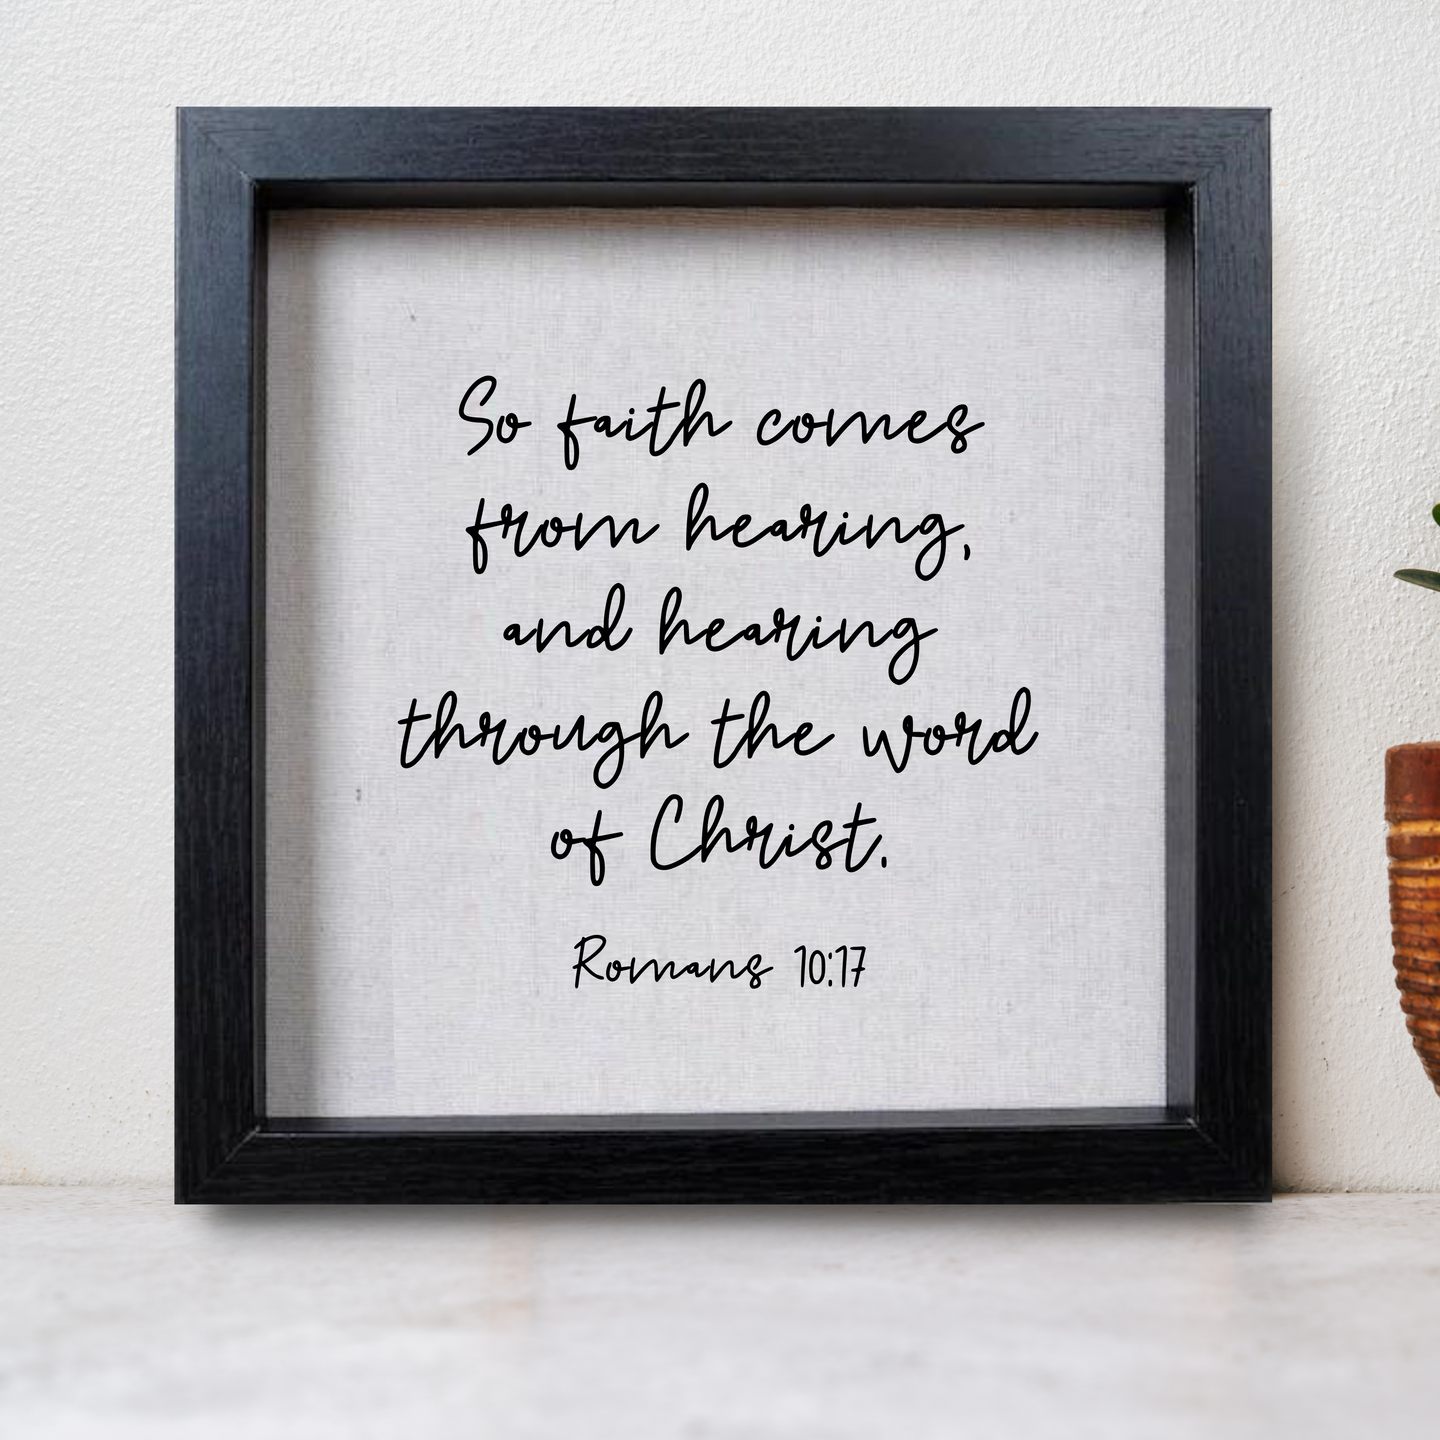 So faith comes
from hearing,
and hearing
through the word
of Christ.
Romans 10:17